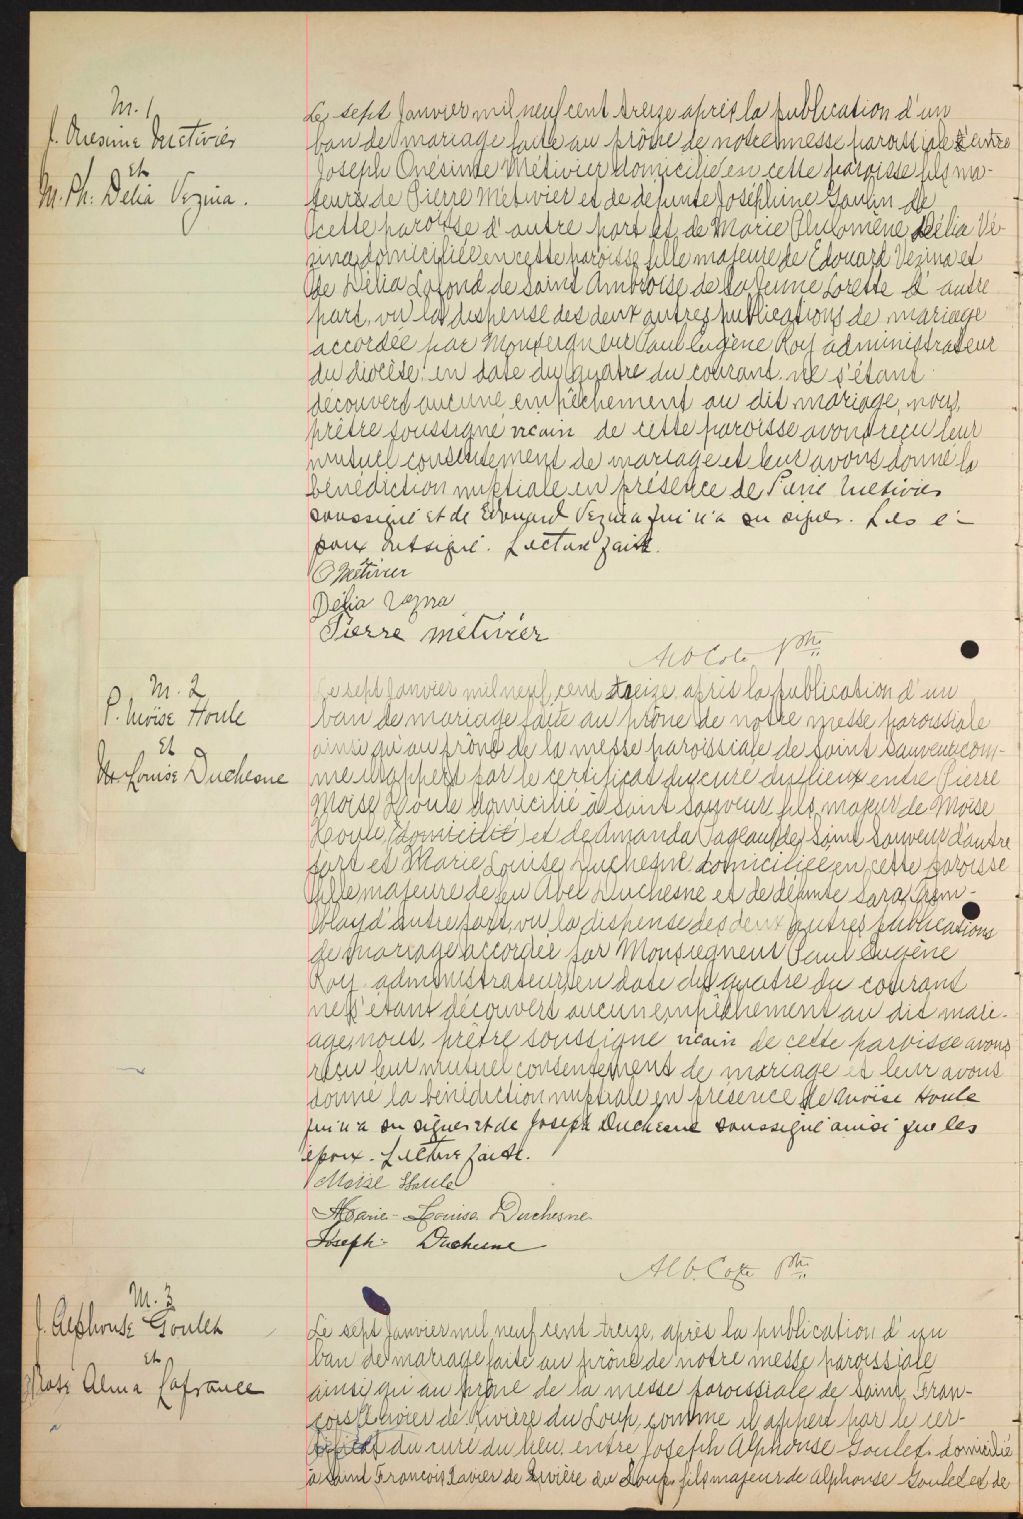 M. 1
J. Onesime Metivier
et
M. Ph. Délia Vezina.
Le sept Janvier mil neuf cent treize après la publication d'un
ban de mariage faite au prône de notre messe paroissiale entre
Joseph Onésime Métivier domicilié en cette paroisse fils ma-
jeure de Pierre Metivier et de défunte Joséphine Gaulin de
cette paroisse d'autre part et de Marie Philomène Délia Vé-
zina domiciliée en cette paroisse fille majeure de Edouard Vezina et
de Délia Lafond de saint Ambroise de la Jeune Lorette d'autre
part, vu la dispense des deux autres publications de mariage
accordée par Monseigneur Paul Eugène Roy administrateur
du diocèse en date du quatre du courant ne s'étant
découvert aucune empêchement au dit mariage, nous,
prêtre soussigné vicaire de cette paroisse avons reçu leur
mutuel consentement de mariage et leur avons donné la
bénédiction nuptiale en présence de Pierre Metivier
soussigné et de Edouard Vezina qui n'a su signer. Les é-
poux ont signé. Lecture faite.
O Métivier
Délia Vezina
Pierre métivier
Alb Coté Ptre
M. 2
P. Moïse Houle
et
M. Louise Duchesne
Le sept Janvier mil neuf cent treize, après la publication d'un
ban de mariage faite au prône de notre messe paroissiale
ainsi qu'au prône de la messe paroissiale de saint sauveur com-
me il appert par le certificat du curé du lieu entre Pierre
Moïse Houle domicilié à saint sauveur fils majeur de Moïse
Houle (domicilié) et de Amanda Pageau de saint sauveur d'autre
part et Marie Louise Duchesne domiciliée en cette paroisse
fille majeure de feu Abel Duchesne et de défunte Sara Trem-
blay d'autre part, vu la dispense des deux autres publications
de mariage accordée par Monseigneur Paul Eugène
Roy administrateur en date du quatre du courant
ne s'étant découvert aucun empêchement au dit mari-
age, nous, prêtre soussigné vicaire de cette paroisse avons
reçu leur mutuel consentement de mariage et leur avons
donné la bénédiction nuptiale en présence de Moïse Houle
qui n'a su signer et de Joseph Duchesne soussigné ainsi que les
époux. Lecture faite.
Moïse Houle
Marie-Louise Duchesne
Joseph Duchesne
Alb. Coté Ptre
M. 3
J. Alphonse Goulet
et
Rose Alma Lafrance
Le sept Janvier mil neuf cent treize, après la publication d'un
ban de mariage faite au prône de notre messe paroissiale
ainsi qu'au prône de la messe paroissiale de saint Fran-
çois Xavier de Rivière du Loup, comme il appert par le cer-
tificat du curé du lieu entre Joseph Alphonse Goulet domicilié
à saint François Xavier de Rivière du Loup fils majeur de Alphonse Goulet et de